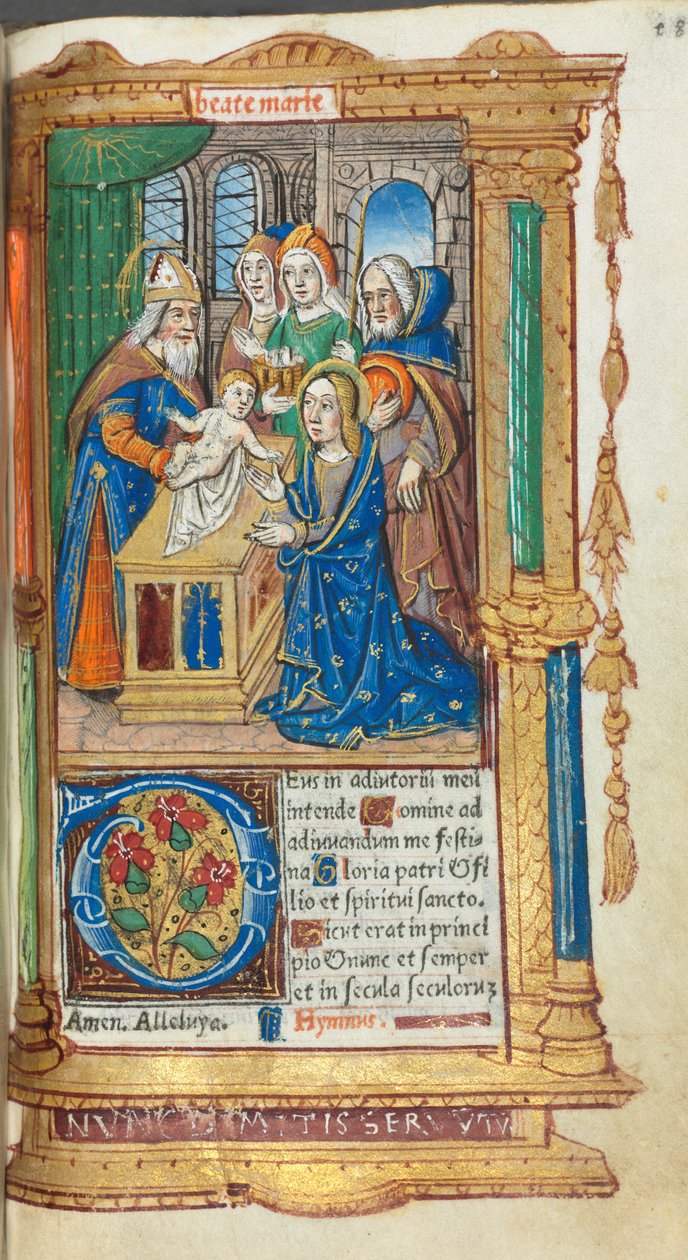 e 8
beate marie
Deus in adiutoriū meū
intende Domine ad
adiuuandum me festi-
na Gloria patri & fi
lio et spiritui sancto.
Sicut erat in princi
pio & nunc et semper
et in secula seculoruꝫ
Amen. Alleluya. Hymnus.
NVNC DIMITIS SERVVTV